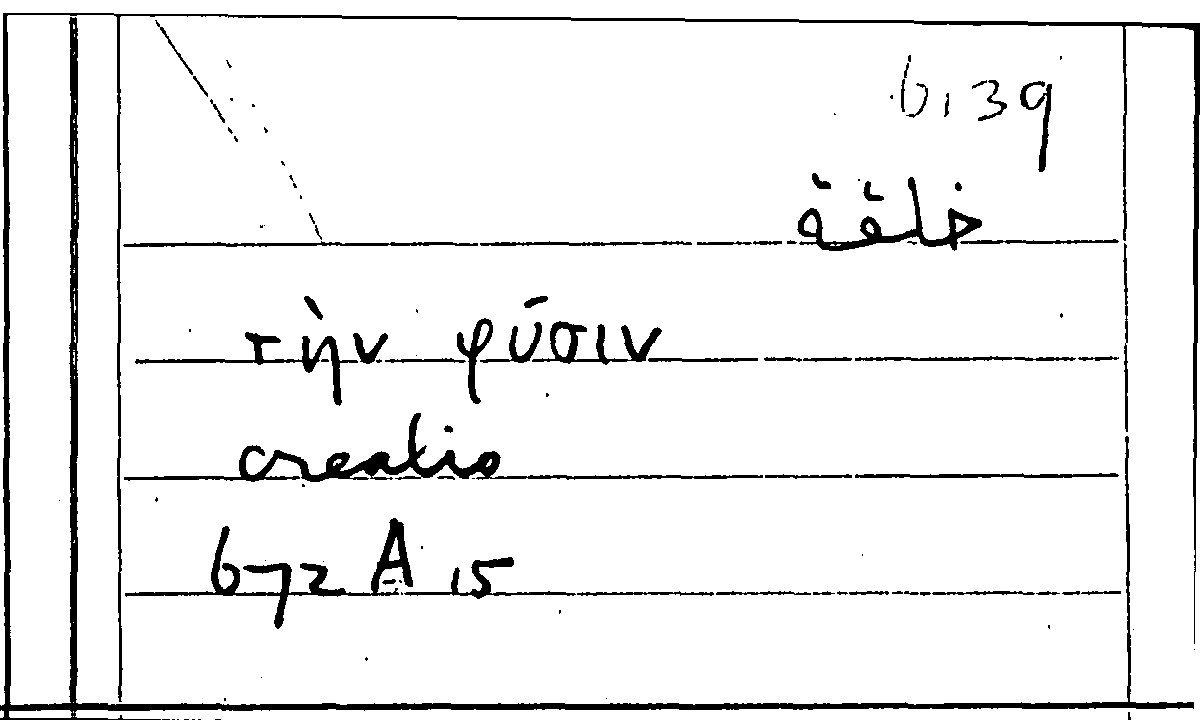 6,39
خلقة
τὴν φύσιν
creatio
672 A 15